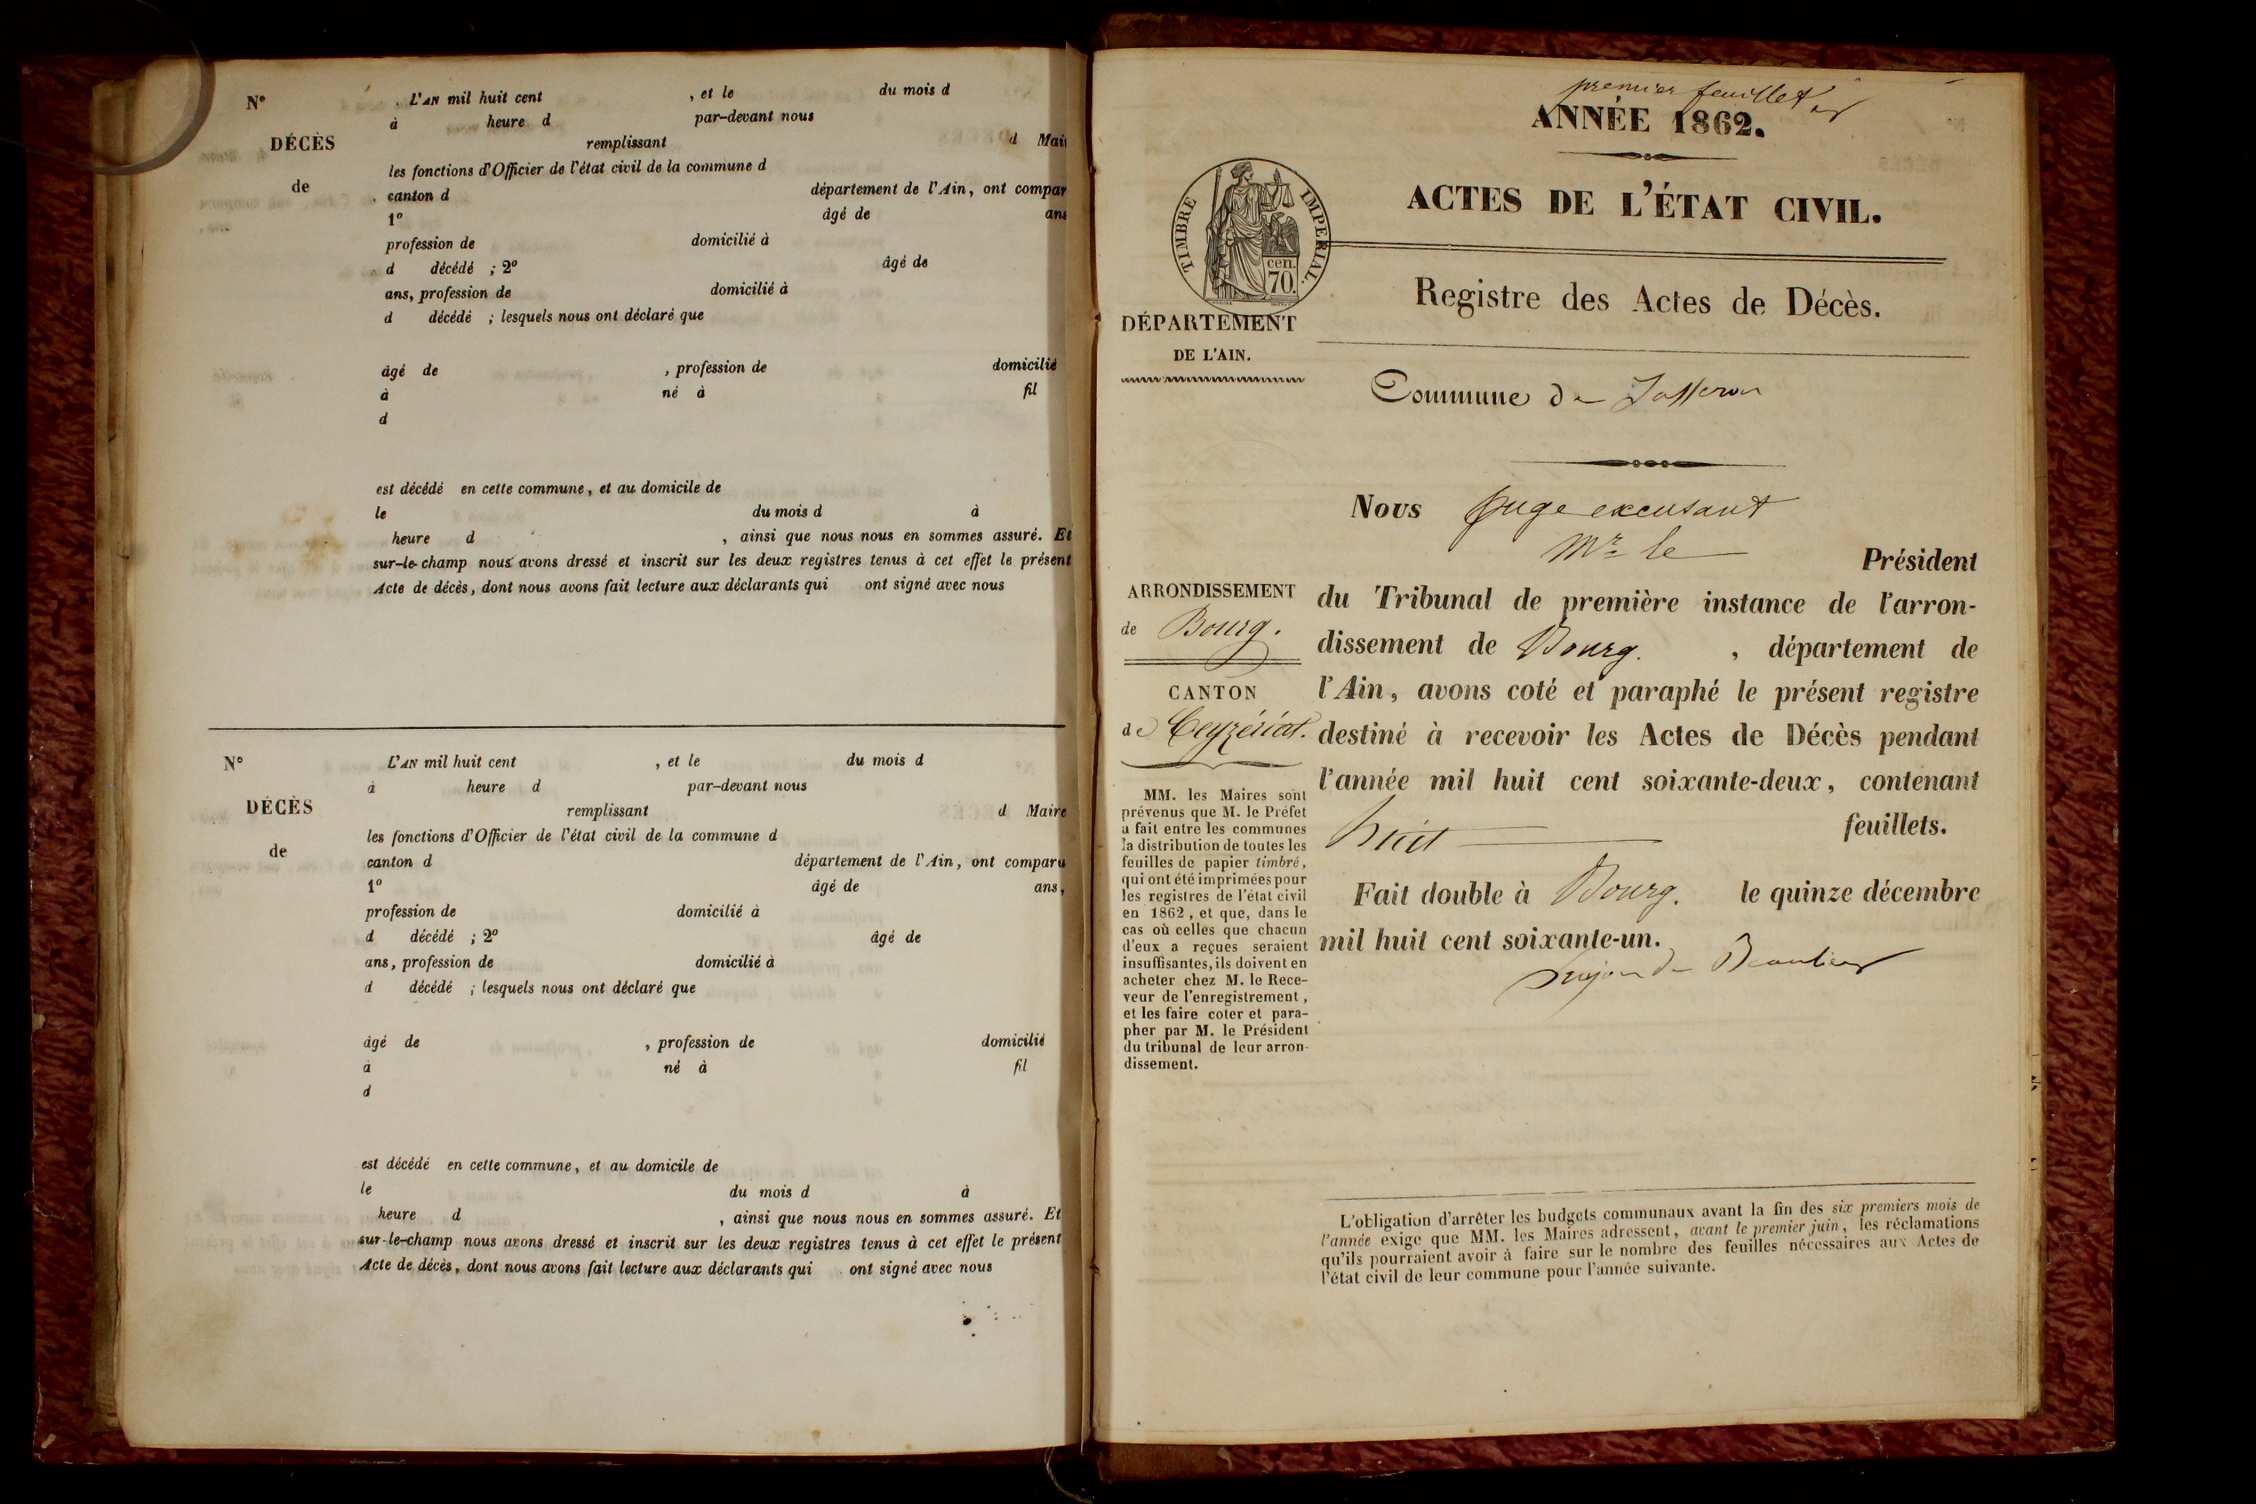 N° L'AN mil huit cent , et le du mois d
à heure d par-devant nous
DÉCÈS remplissant d Mai
les fonctions d'Officier de l'état civil de la commune d
de canton d département de l'Ain, ont compar
1° âgé de ans
profession de domicilié à
d décédé ; 2° âgé de
ans, profession de domicilié à
d décédé ; lesquels nous ont déclaré que
âgé de , profession de domicilié
à né à fil
d
est décédé en cette commune, et au domicile de
le du mois d à
heure d , ainsi que nous nous en sommes assuré. Et
sur-le-champ nous avons dressé et inscrit sur les deux registres tenus à cet effet le présent
Acte de décès, dont nous avons fait lecture aux déclarants qui ont signé avec nous
N° L'AN mil huit cent , et le du mois d
à heure d par-devant nous
DÉCÈS remplissant d Maire
les fonctions d'Officier de l'état civil de la commune d
de canton d département de l'Ain, ont comparu
1° âgé de ans,
profession de domicilié à
d décédé ; 2° âgé de
ans, profession de domicilié à
d décédé ; lesquels nous ont déclaré que
âgé de , profession de domicilié
à né à fil
d
est décédé en cette commune, et au domicile de
le du mois d à
heure d , ainsi que nous nous en sommes assuré. Et
sur-le-champ nous avons dressé et inscrit sur les deux registres tenus à cet effet le présent
Acte de décès, dont nous avons fait lecture aux déclarants qui ont signé avec nous
premier feuillet
ANNÉE 1862.
ACTES DE L'ÉTAT CIVIL.
TIMBRE IMPERIAL.
cen.
70.
Registre des Actes de Décès.
DÉPARTEMENT
DE L'AIN.
Commune de Jasseron
Nous Juge excusant
Mr le Président
du Tribunal de première instance de l'arron-
dissement de Bourg. , département de
l'Ain, avons coté et paraphé le présent registre
destiné à recevoir les Actes de Décès pendant
l'année mil huit cent soixante-deux, contenant
huit feuillets.
Fait double à Bourg. le quinze décembre
mil huit cent soixante-un.
de Beaulieu
ARRONDISSEMENT
de Bourg.
CANTON
de Ceyzériat.
MM. les Maires sont
prévenus que M. le Préfet
a fait entre les communes
la distribution de toutes les
feuilles de papier timbré,
qui ont été imprimées pour
les registres de l'état civil
en 1862, et que, dans le
cas où celles que chacun
d'eux a reçues seraient
insuffisantes, ils doivent en
acheter chez M. le Rece-
veur de l'enregistrement,
et les faire coter et para-
pher par M. le Président
du tribunal de leur arron-
dissement.
L'obligation d'arrêter les budgets communaux avant la fin des six premiers mois de
l'année exige que MM. les Maires adressent, avant le premier juin, les réclamations
qu'ils pourraient avoir à faire sur le nombre des feuilles nécessaires aux Actes de
l'état civil de leur commune pour l'année suivante.